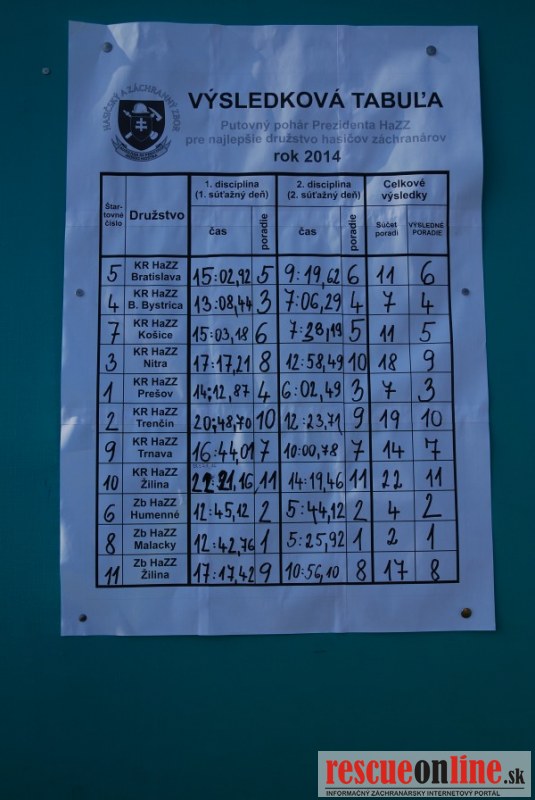 HASIČSKÝ A ZÁCHRANNÝ ZBOR
VÝSLEDKOVÁ TABUĽA
Putovný pohár Prezidenta HaZZ
pre najlepšie družstvo hasičov záchranárov
rok 2014
Štar-tovné číslo Družstvo 1. disciplína (1. súťažný deň) 2. disciplína (2. súťažný deň) Celkové výsledky
čas poradie čas poradie Súčet poradí VÝSLEDNÉ PORADIE
5 KR HaZZ Bratislava 15:02,92 5 9:19,62 6 11 6
4 KR HaZZ B. Bystrica 13:08,44 3 7:06,29 4 7 4
7 KR HaZZ Košice 15:03,18 6 7:28,19 5 11 5
3 KR HaZZ Nitra 17:17,21 8 12:58,49 10 18 9
1 KR HaZZ Prešov 14:12,87 4 6:02,49 3 7 3
2 KR HaZZ Trenčín 20:48,70 10 12:23,71 9 19 10
9 KR HaZZ Trnava 16:44,01 7 10:00,78 7 14 7
10 KR HaZZ Žilina 22:21,16 11 14:19,46 11 22 11
6 Zb HaZZ Humenné 12:45,12 2 5:44,12 2 4 2
8 Zb HaZZ Malacky 12:42,76 1 5:25,92 1 2 1
11 Zb HaZZ Žilina 17:17,42 9 10:56,10 8 17 8
rescueonline.sk
INFORMAČNÝ ZÁCHRANÁRSKY INTERNETOVÝ PORTÁL